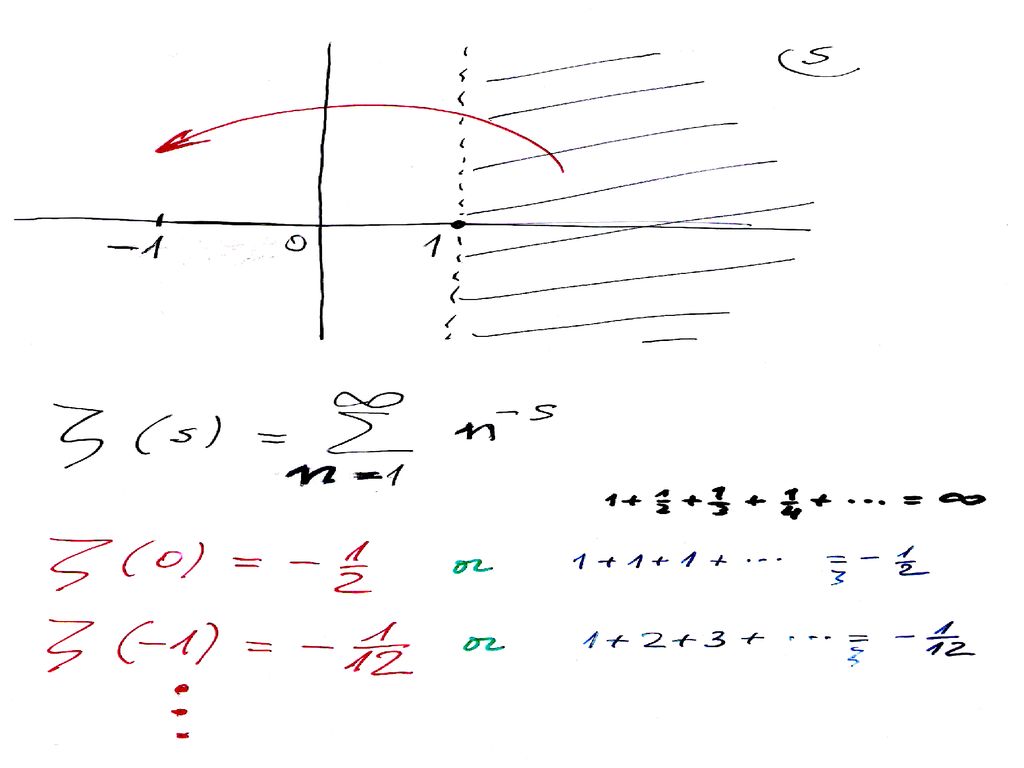 s
-1 0 1
ζ(s) = ∑_{n=1}^{∞} n^{-s}
1 + 1/2 + 1/3 + 1/4 + ... = ∞
ζ(0) = - 1/2 or 1 + 1 + 1 + ... =_ζ - 1/2
ζ(-1) = - 1/12 or 1 + 2 + 3 + ... =_ζ - 1/12
⋮